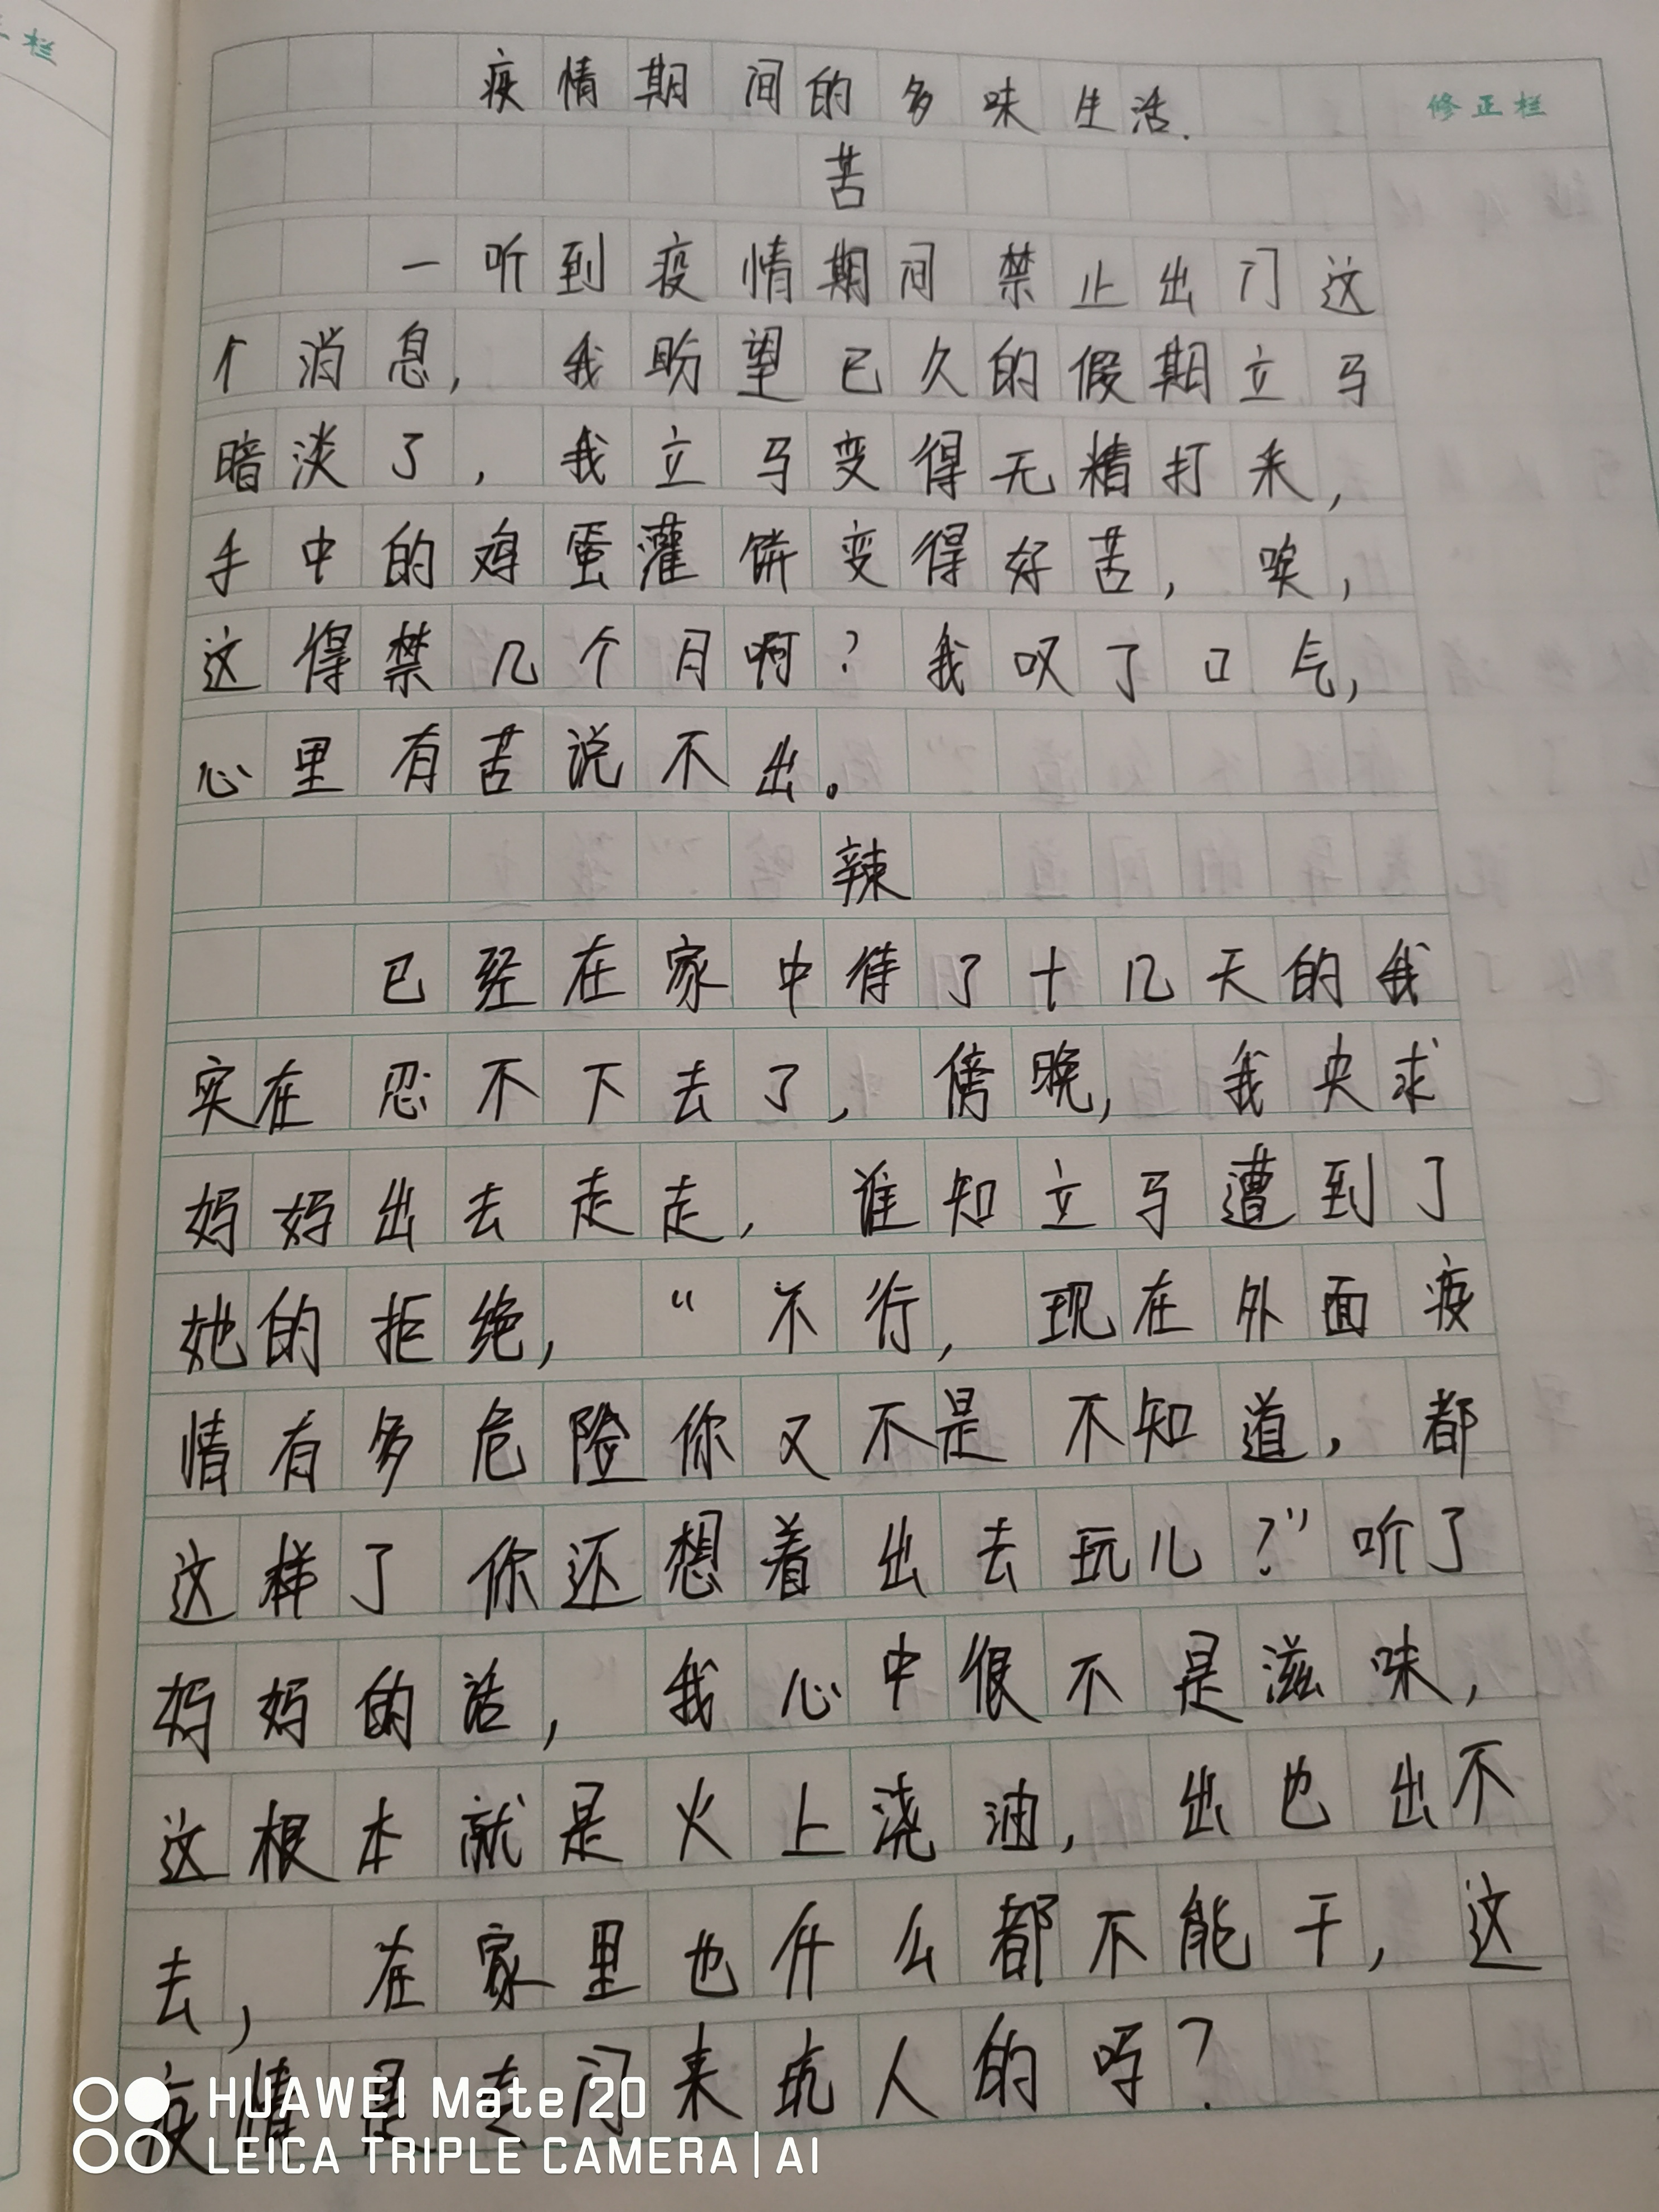 栏
疫情期间的多味生活.
修正栏
苦
一听到疫情期间禁止出门这
个消息，我盼望已久的假期立马
暗淡了，我立马变得无精打采，
手中的鸡蛋灌饼变得好苦，唉，
这得禁几个月啊？我叹了口气，
心里有苦说不出。
辣
已经在家中待了十几天的我
实在忍不下去了，傍晚，我央求
妈妈出去走走，谁知立马遭到了
她的拒绝，“不行，现在外面疫
情有多危险你又不是不知道，都
这样了你还想着出去玩儿？”听了
妈妈的话，我心中很不是滋味，
这根本就是火上浇油，出也出不
去，在家里也什么都不能干，这
疫情是专门来坑人的吗？
HUAWEI Mate 20
LEICA TRIPLE CAMERA | AI